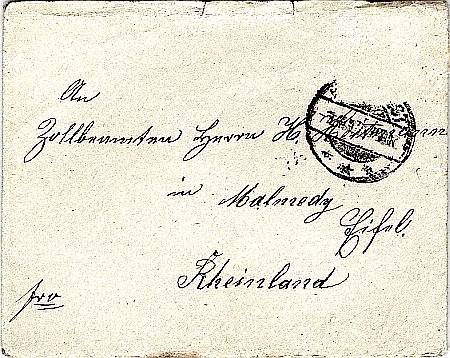 An
Zollbeamten Herrn H.
in Malmedy
Eifel.
Rheinland
fro